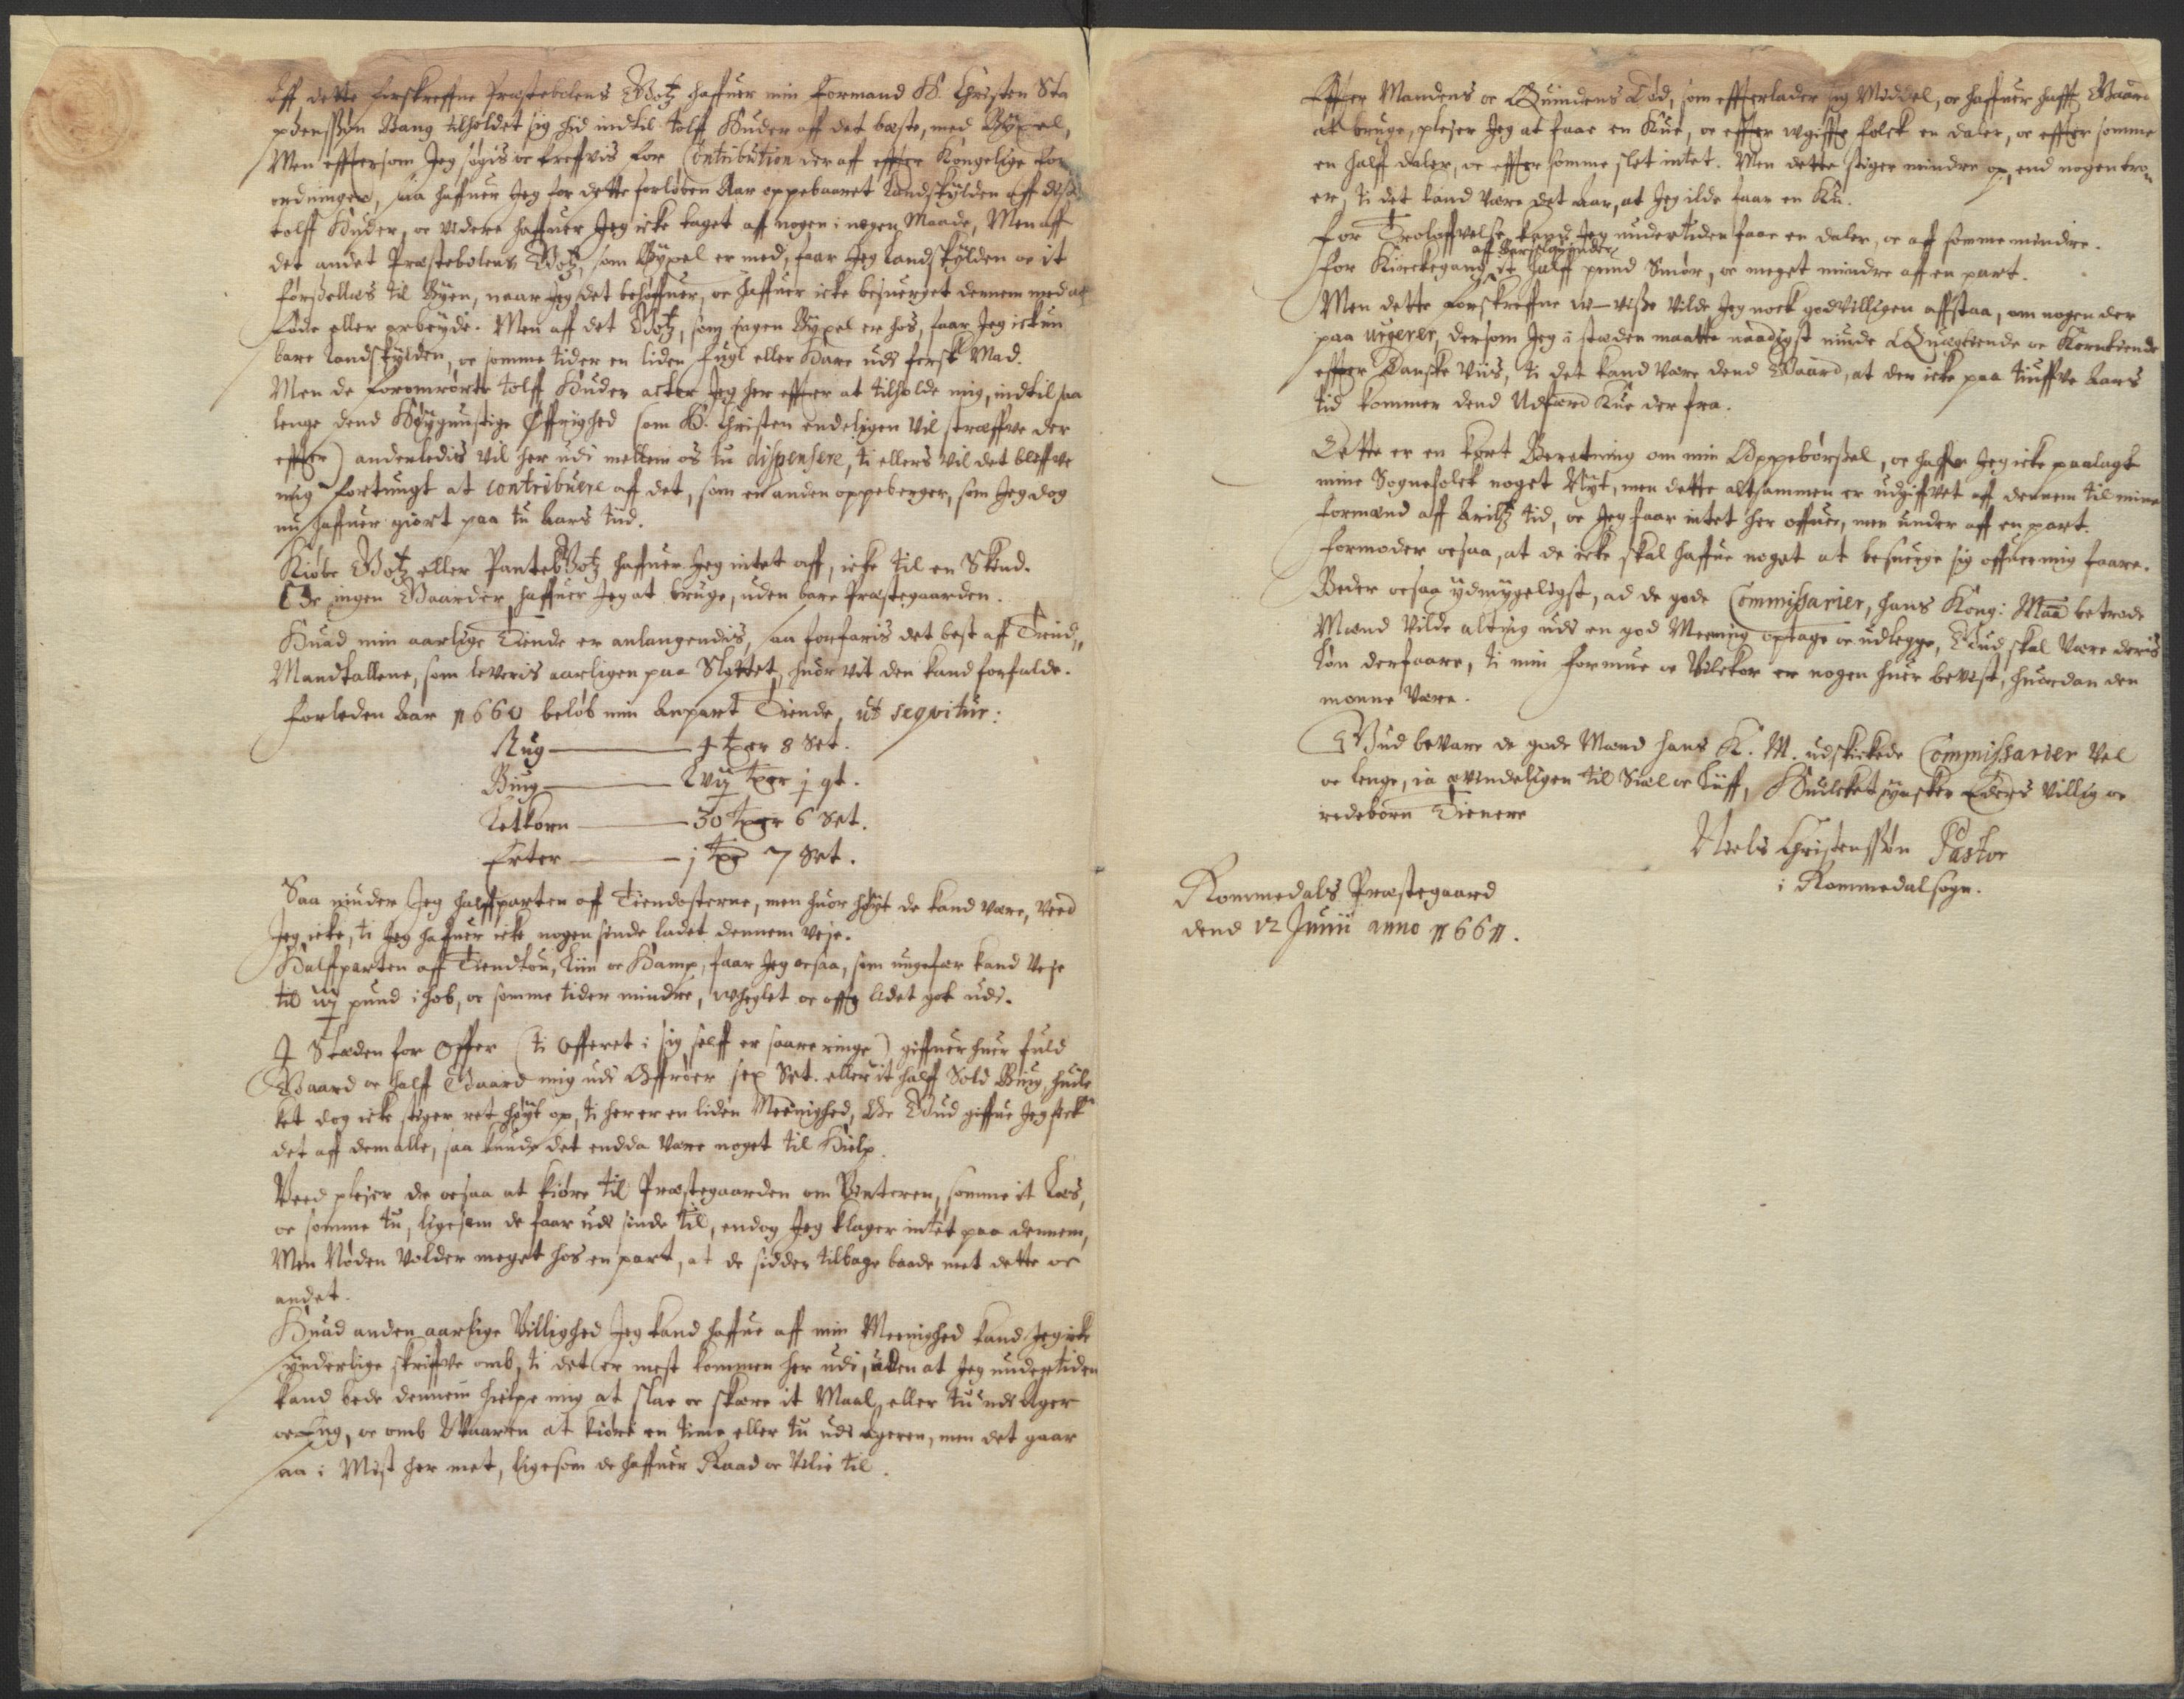 Aff dette forskreffne Præstebolens Gotz haffuer min Formand H. Christen Sta
phenssøn Bang tilholdet sig hid indtil tolff Huder aff det bæste, med Bÿxel,
Men efftersom Jeg søgis oc kreffvis for Contribution der aff effter Kongelige For
ordninger, saa haffuer Jeg for dette forløben Aar oppebaaret Landskÿlden aff disse
tolff Huder, oc videre haffuer Jeg icke taget aff nogen i nogen Maade, Men aff
det andet Præstebolens Gotz, som Bÿxel er med, faar Jeg Landskÿlden oc it
førsellæs til Bÿen, naar Jeg det behøffuer, oc haffuer icke besuerget dennem med at
føde eller arbeÿde. Men aff det Gotz, som ingen Bÿxel er hos, faar Jeg ickun
bare Landskÿlden, oc somme tider en liden Fugl eller Hare udi fersk Mad.
Men de foromrørte tolff Huder acter Jeg her effter at tilholde mig, indtil saa
lenge dend Høÿgunstige Øffrighed (som H. Christen endeligen vil stræffve der
effter) anderledis vil her udi mellem os tu dispensere, ti ellers vil det bleffve
mig fortungt at contribuere aff det, som en anden oppeberger, som Jeg dog
nu haffuer giort paa tu Aars tiid.
Kiøbe Gotz eller Pante Gotz haffuer Jeg intet aff, icke til en Skind.
Oc ingen Gaarder haffuer Jeg at bruge, uden bare Præstegaarden.
Huad min aarlige Tiende er anlangendis, saa forfaris det best aff Tiend,,
Mandtallene, som leveris aarligen paa Slottet, huor vit den kand forfalde.
Forleden Aar 1660 beløb min Anpart Tiende, ut seqvitur:
Rug ——— 4 tdr 8 Set.
Biug ——— Lvij tdr j qt.
Letkorn ——— 30 tdr 6 Set.
Erter ——— j td 7 Set.
Saa niuder Jeg halffparten aff Tiendosterne, men huor høÿt de kand være, veed
Jeg icke, ti Jeg haffuer icke nogen sinde ladet dennem veje.
Halffparten aff Tiendtøu, Liin oc Hamp, faar Jeg ocsaa, som ungefær kand veje
til iij pund i hob, oc somme tider mindre, wheglet oc offte lidet got udi.
J Stæden for Offer (ti Offeret i sig self er saare ringe) giffuer huer fuld
Gaard oc halff Gaard mig udi Offroer sex Set. eller it halff Sold Biug, huil
ket dog icke stiger ret høÿt op, ti her er en liden Meenighed, Oc Gud giffue Jeg fick
det aff dem alle, saa kunde det endda være noget til Hielp.
Veed plejer de ocsaa at kiøre til Præstegaarden om Vinteren, somme it Læs,
oc somme tu, ligesom de faar udi sinde til, endog Jeg klager intet paa dennem,
Men Nøden volder meget hos en part, at de sidder tilbage baade met dette oc
andet.
Huad anden aarlige Villighed Jeg kand haffue aff min Meenighed kand Jeg icke
sÿnderlige skriffve omb, ti det er mest kommen her udi, uden at Jeg undertiden
kand bede dennem hielpe mig at slae oc skære it Maal, eller tu udi Ager
oc Eng, oc omb Vaaren at kiøre en time eller tu udi Ageren, men det gaar
saa i Mist her met, ligesom de haffuer Raad oc Vilie til.
Effter Mandens oc Quindens Død, som effterlader sig Middel, oc haffuer hafft Gaard
at bruge, plejer Jeg at faae en Kue, oc effter wgiffte folck en daler, oc effter somme
en halff daler, oc effter somme slet intet. Men dette stiger mindre op, end nogen tro
er, ti det kand være det Aar, at Jeg ilde faar en Ku.
For Troloffvelse kand Jeg undertiden faae en daler, oc aff somme mindre.
aff Barselqvinder
For Kirckegang it halff pund Smør, oc meget mindre aff en part.
Men dette forskreffne w-visse vilde Jeg nock godvilligen affstaa, om nogen der
paa urgerer, dersom Jeg i stæden maatte naadigst niude Quægtiende oc Korntiende
effter Danske Viis, ti det kand være dend Gaard, at der icke paa tiuffve Aars
tid kommer dend Udferd Kue der fra.
Dette er en kort Beretning om min Oppebørssel, oc haffr Jeg icke paalagt
mine Sognefolck noget Nÿt, men dette altsammen er udgiffvet aff dennem til mine
Formænd aff Arildz tid, oc Jeg faar intet her offuer, men under aff en part.
Formoder ocsaa, at de icke skal haffue noget at besuerge sig offuer mig faare.
Beder ocsaa ÿdmÿgeligst, ad de gode Commissarier, hans Kong: Maÿ betroede
Mænd vilde alting udi en god Meening optage oc udlegge, Gud skal være deris
Løn derfaare, ti min Formue oc Vilckor er nogen huer bevist, huordan den
monne være.
Gud bevare de gode Mænd hans K. M. udskickede Commissarier vel
oc lenge, ia ævindeligen til Siæl oc Liiff, Huilcket ÿnsker Eders villig oc
redebørn Tienere
Niels Christenssøn Pastor
i Rommedal sogn.
Rommedals Præstegaard
dend 12 Junii anno 1661.